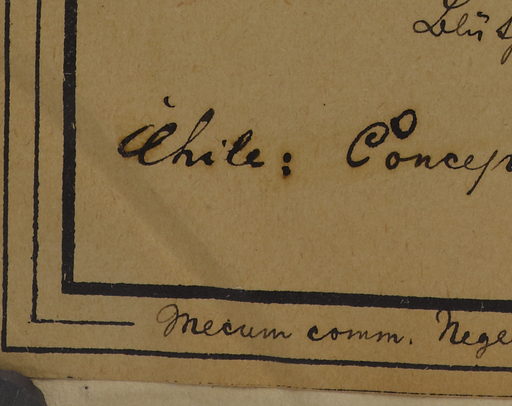 Chile: Concep
Mecum comm. Nege